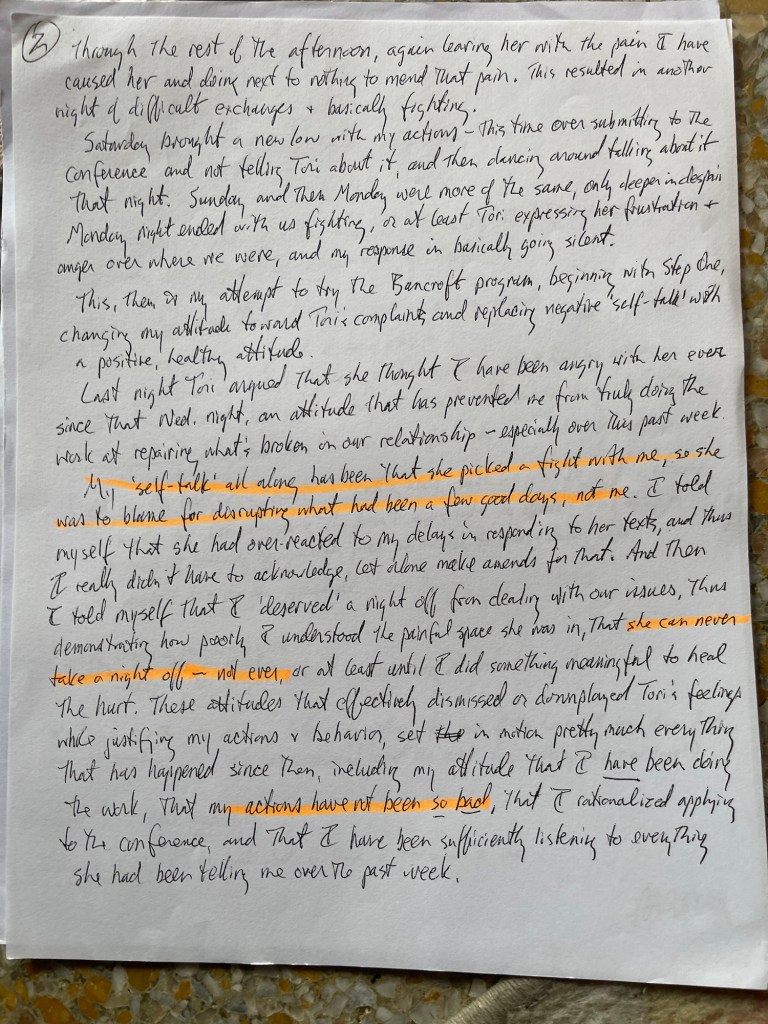 2
through the rest of the afternoon, again leaving her with the pain I have
caused her and doing next to nothing to mend that pain. This resulted in another
night of difficult exchanges + basically fighting.
Saturday brought a new low with my actions – this time over submitting to the
conference and not telling Tori about it, and then dancing around talking about it
that night. Sunday and then Monday were more of the same, only deeper in despair
Monday night ended with us fighting, or at least Tori expressing her frustration +
anger over where we were, and my response in basically going silent.
This, then is my attempt to try the Bancroft program, beginning with Step One,
changing my attitude toward Tori's complaints and replacing negative 'self-talk' with
a positive, healthy attitude.
Last night Tori argued that she thought I have been angry with her ever
since that Wed. night, an attitude that has prevented me from truly doing the
work at repairing what's broken in our relationship – especially over this past week.
My 'self-talk' all along has been that she picked a fight with me, so she
was to blame for disrupting what had been a few good days, not me. I told
myself that she had over-reacted to my delays in responding to her texts, and thus
I really didn't have to acknowledge, let alone make amends for that. And then
I told myself that I 'deserved' a night off from dealing with our issues, thus
demonstrating how poorly I understood the painful space she was in, that she can never
take a night off – not ever, or at least until I did something meaningful to heal
the hurt. These attitudes that effectively dismissed or downplayed Tori's feelings
while justifying my actions + behavior, set the in motion pretty much everything
that has happened since then, including my attitude that I have been doing
the work, that my actions have not been so bad, that I rationalized applying
to the conference, and that I have been sufficiently listening to everything
she had been telling me over the past week.